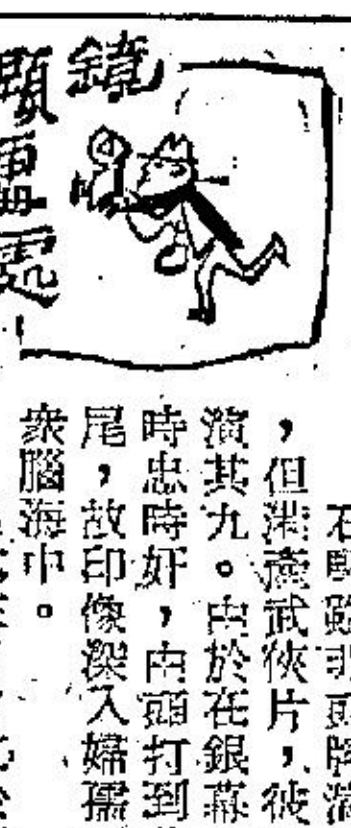 鏡
石堅雖非
，但港產武俠片，彼
演其九。由於在銀幕
時忠時奸，由頭打到
尾，故印像深入婦孺
衆腦海中。